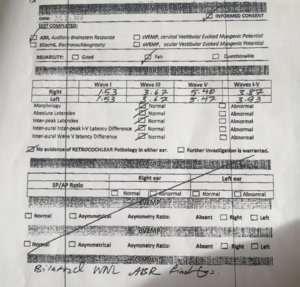 DATE: INFORMED CONSENT
TEST COMPLETED:
ABR, Auditory Brainstem Response cVEMP, cervical Vestibular Evoked Myogenic Potential
ECochG, Electrocochleography oVEMP, ocular Vestibular Evoked Myogenic Potential
RELIABILITY: Good Fair Questionable
Wave I Wave III Wave V Waves I-V
Right 1.53 3.67 5.40 3.87
Left 1.53 3.67 5.47 3.93
Morphology Normal Abnormal
Absolute Latencies Normal Abnormal
Inter-peak Latencies Normal Abnormal
Inter-aural Inter-peak I-V Latency Difference Normal Abnormal
Inter-aural Wave V Latency Difference Normal Abnormal
No evidence of RETROCOCHLEAR Pathology in either ear. Further investigation is warranted.
Right ear Left ear
SP/AP Ratio
Normal Abnormal Normal Abnormal
Normal Asymmetrical Asymmetry Ratio: Absent Right Left
Normal Asymmetrical Asymmetry Ratio: Absent Right Left
Bilateral WNL ABR findings.